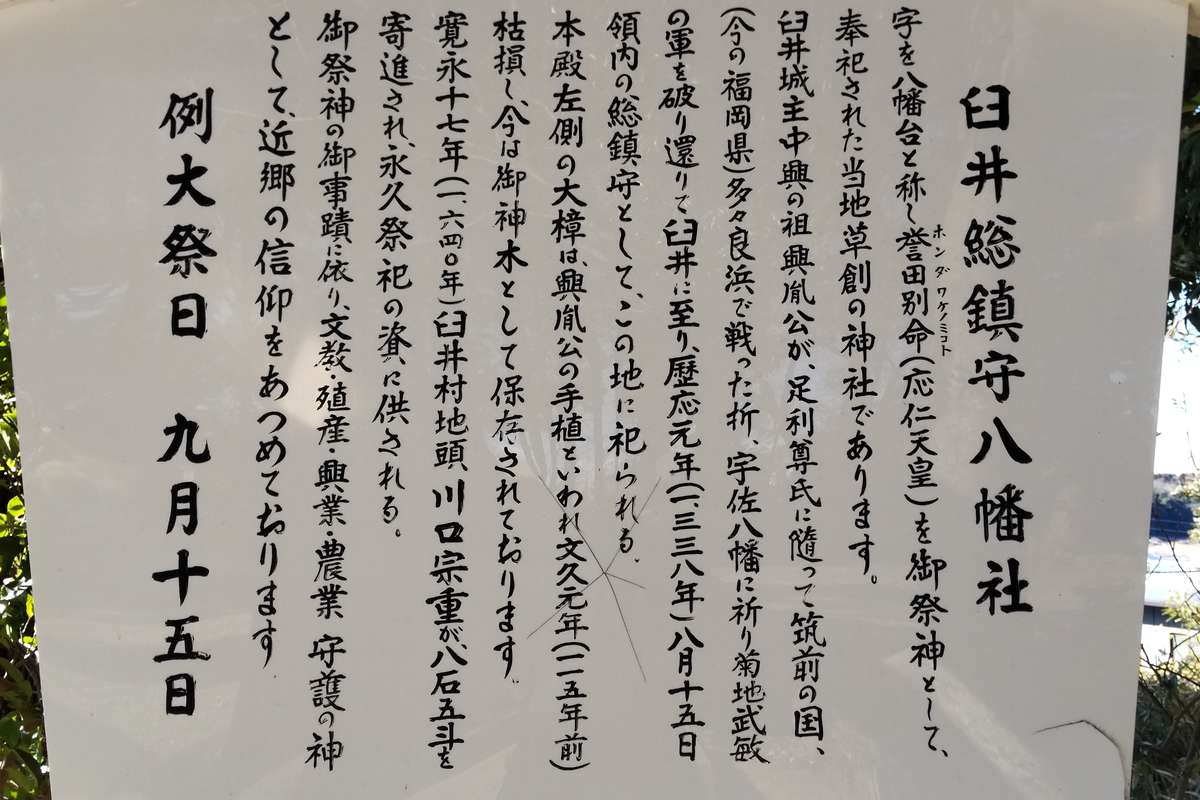 臼井総鎮守八幡社
字を八幡台と称し誉田別命(応仁天皇)を御祭神として、
ホンダワケノミコト
奉祀された当地草創の神社であります。
臼井城主中興の祖興胤公が、足利尊氏に隨って筑前の国、
(今の福岡県)多々良浜で戦った折、宇佐八幡に祈り菊地武敏
の軍を破り還りて臼井に至り、歴応元年(一、三三八年)八月十五日
領内の総鎮守として、この地に祀られる。
本殿左側の大樟は、興胤公の手植といわれ文久元年(一一五年前)
枯損し、今は御神木として保存されております。
寛永十七年(一、六四〇年)臼井村地頭、川口宗重が八石五斗を
寄進され、永久祭祀の資に供される。
御祭神の御事蹟に依り、文教・殖産・興業・農業 守護の神
として、近郷の信仰をあつめております
例大祭日 九月十五日